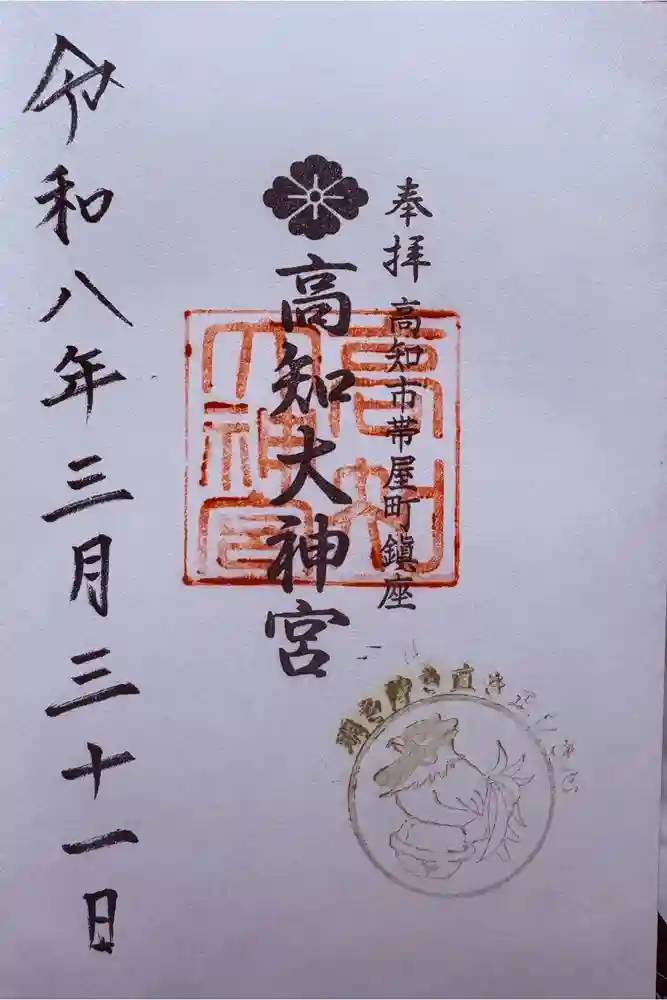 奉拝 高知市帯屋町鎮座
高知大神宮
高知大神宮
令和八年三月三十一日